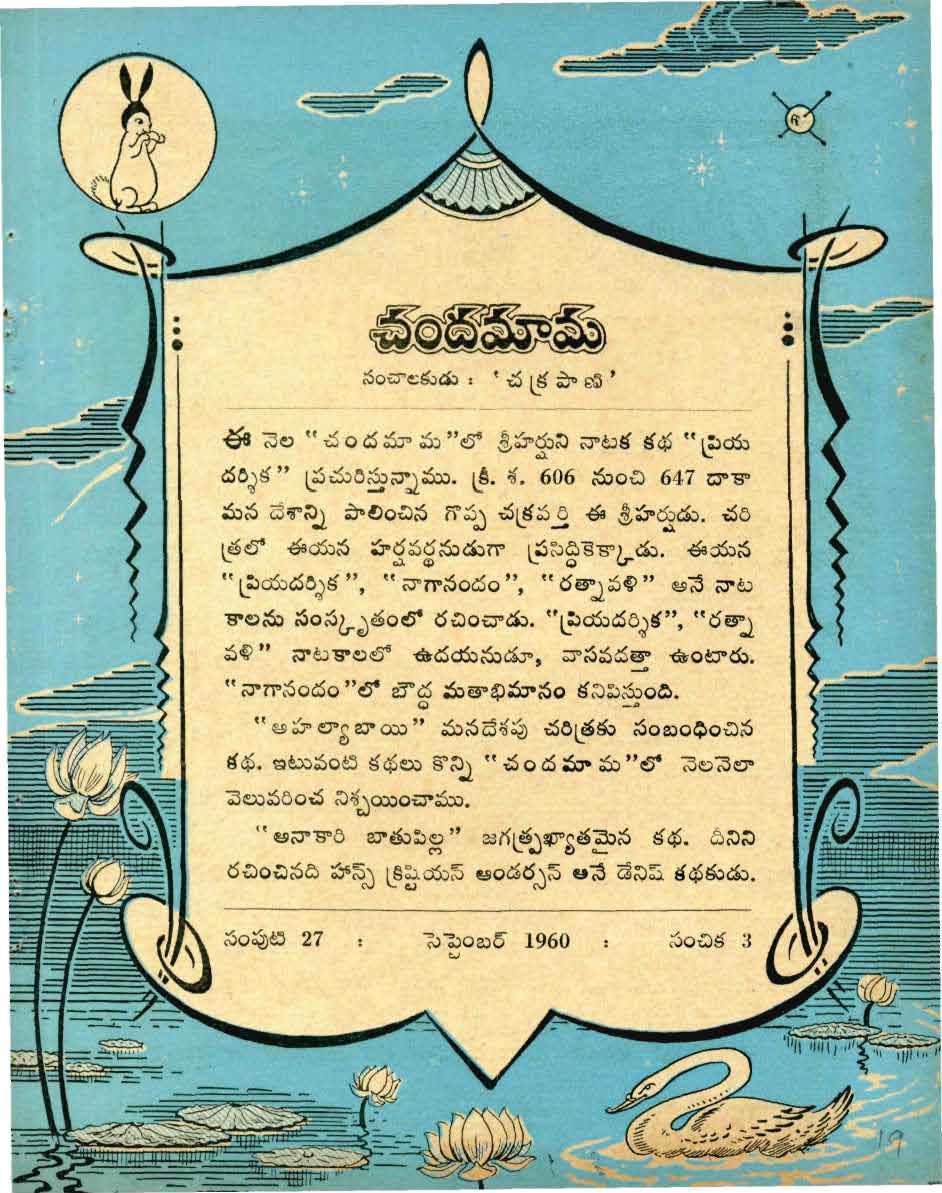 చందమామ
సంచాలకుడు : ' చక్రపాణి '
ఈ నెల "చందమామ"లో శ్రీహర్షుని నాటక కథ "ప్రియ
దర్శిక" ప్రచురిస్తున్నాము. క్రీ. శ. 606 నుంచి 647 దాకా
మన దేశాన్ని పాలించిన గొప్ప చక్రవర్తి ఈ శ్రీహర్షుడు. చరి
త్రలో ఈయన హర్షవర్థనుడుగా ప్రసిద్ధికెక్కాడు. ఈయన
"ప్రియదర్శిక", "నాగానందం", "రత్నావళి" అనే నాట
కాలను సంస్కృతంలో రచించాడు. "ప్రియదర్శిక", "రత్నా
వళి" నాటకాలలో ఉదయనుడూ, వాసవదత్తా ఉంటారు.
"నాగానందం"లో బౌద్ధ మతాభిమానం కనిపిస్తుంది.
"అహల్యాబాయి" మనదేశపు చరిత్రకు సంబంధించిన
కథ. ఇటువంటి కథలు కొన్ని "చందమామ"లో నెలనెలా
వెలువరించ నిశ్చయించాము.
"అనాకారి బాతుపిల్ల" జగత్ప్రఖ్యాతమైన కథ. దీనిని
రచించినది హాన్స్ క్రిష్టియన్ ఆండర్సన్ అనే డేనిష్ కథకుడు.
సంపుటి 27 : సెప్టెంబర్ 1960 : సంచిక 3
19